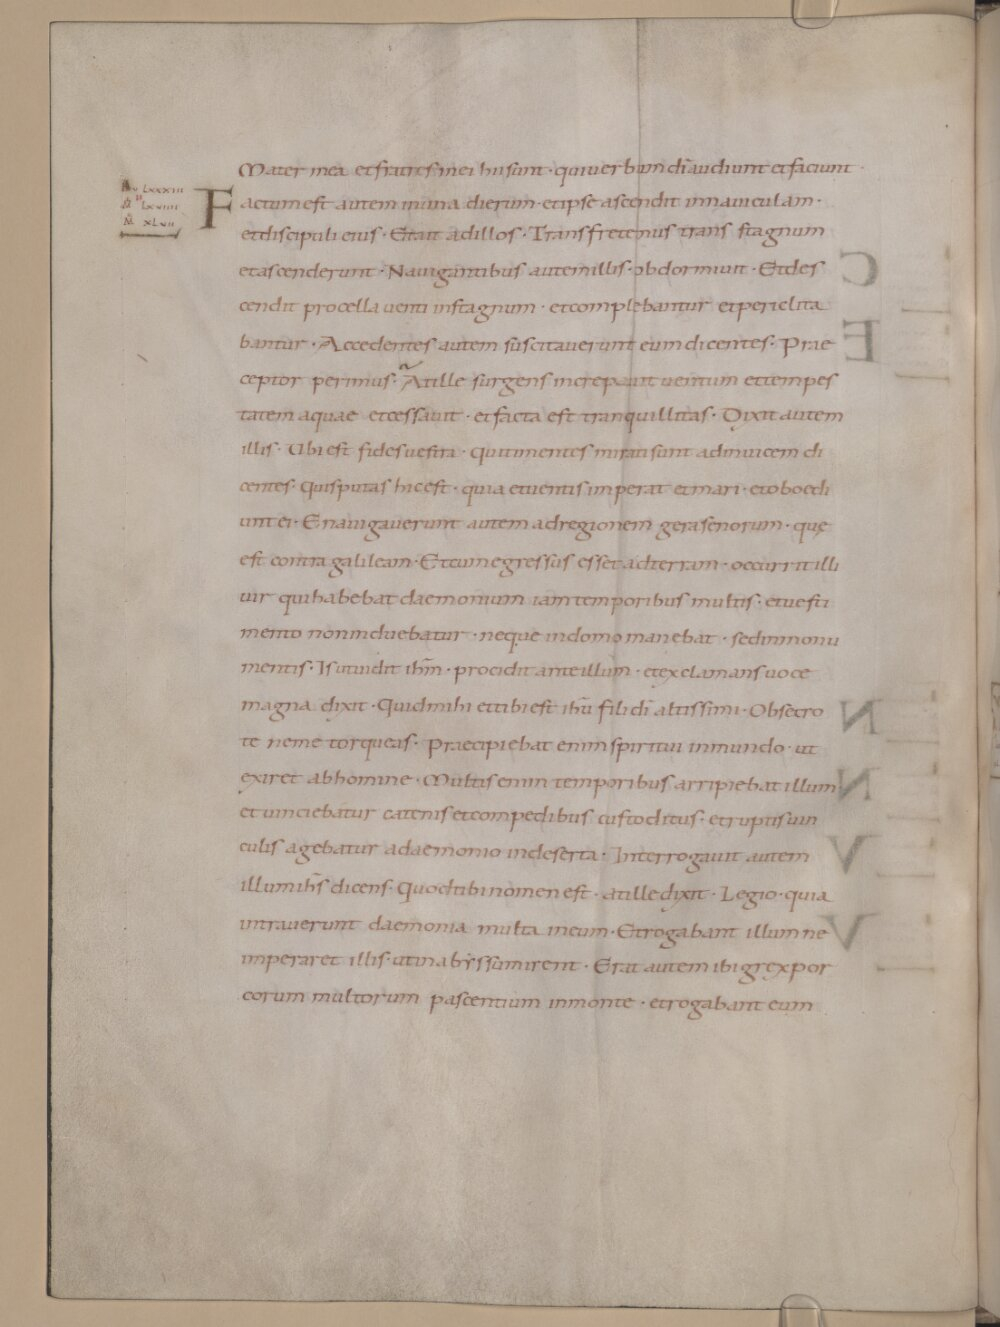 Mater mea et fratres mei hii sunt · qui uerbum dī audiunt et faciunt ·
Lu LXXXIII
II
M LXVIIII
M XLVII
Factum est autem in una dierum · et ipse ascendit in nauiculam ·
et discipuli eius · Et ait ad illos · Transfretemus trans stagnum
et ascenderunt · Nauigantibus autem illis · obdormiuit · Et des
cendit procella uenti in stagnum · et complebantur et periclita
bantur · Accedentes autem suscitauerunt eum dicentes · Prae
ceptor perimus · At ille surgens increpauit uentum et tempes
tatem aquae et cessauit · et facta est tranquillitas · Dixit autem
illis · Ubi est fides uestra · qui timentes mirati sunt ad inuicem di
centes · Quis putas hic est · quia et uentis imperat et mari · et oboedi
unt ei · Enauigauerunt autem ad regionem gerasenorum · quę
est contra galileam · Et cum egressus esset ad terram · occurrit illi
uir qui habebat daemonium iam temporibus multis · et uesti
mento non induebatur · neque in domo manebat · sed in monu
mentis · Is ut uidit ihm̄ · procidit ante illum · et exclamans uoce
magna dixit · Quid mihi et tibi est ihū fili dī altissimi · Obsecro
te ne me torqueas · Praecipiebat enim spiritui inmundo · ut
exiret ab homine · Multis enim temporibus arripiebat illum
et uinciebatur catenis et compedibus custoditus · et ruptis uin
culis agebatur a daemonio in deserta · Interrogauit autem
illum ihs̄ dicens · Quod tibi nomen est · at ille dixit · Legio · quia
intrauerunt daemonia multa in eum · Et rogabant illum ne
imperaret illis · ut in abyssum irent · Erat autem ibi grex por
corum multorum pascentium in monte · et rogabant eum